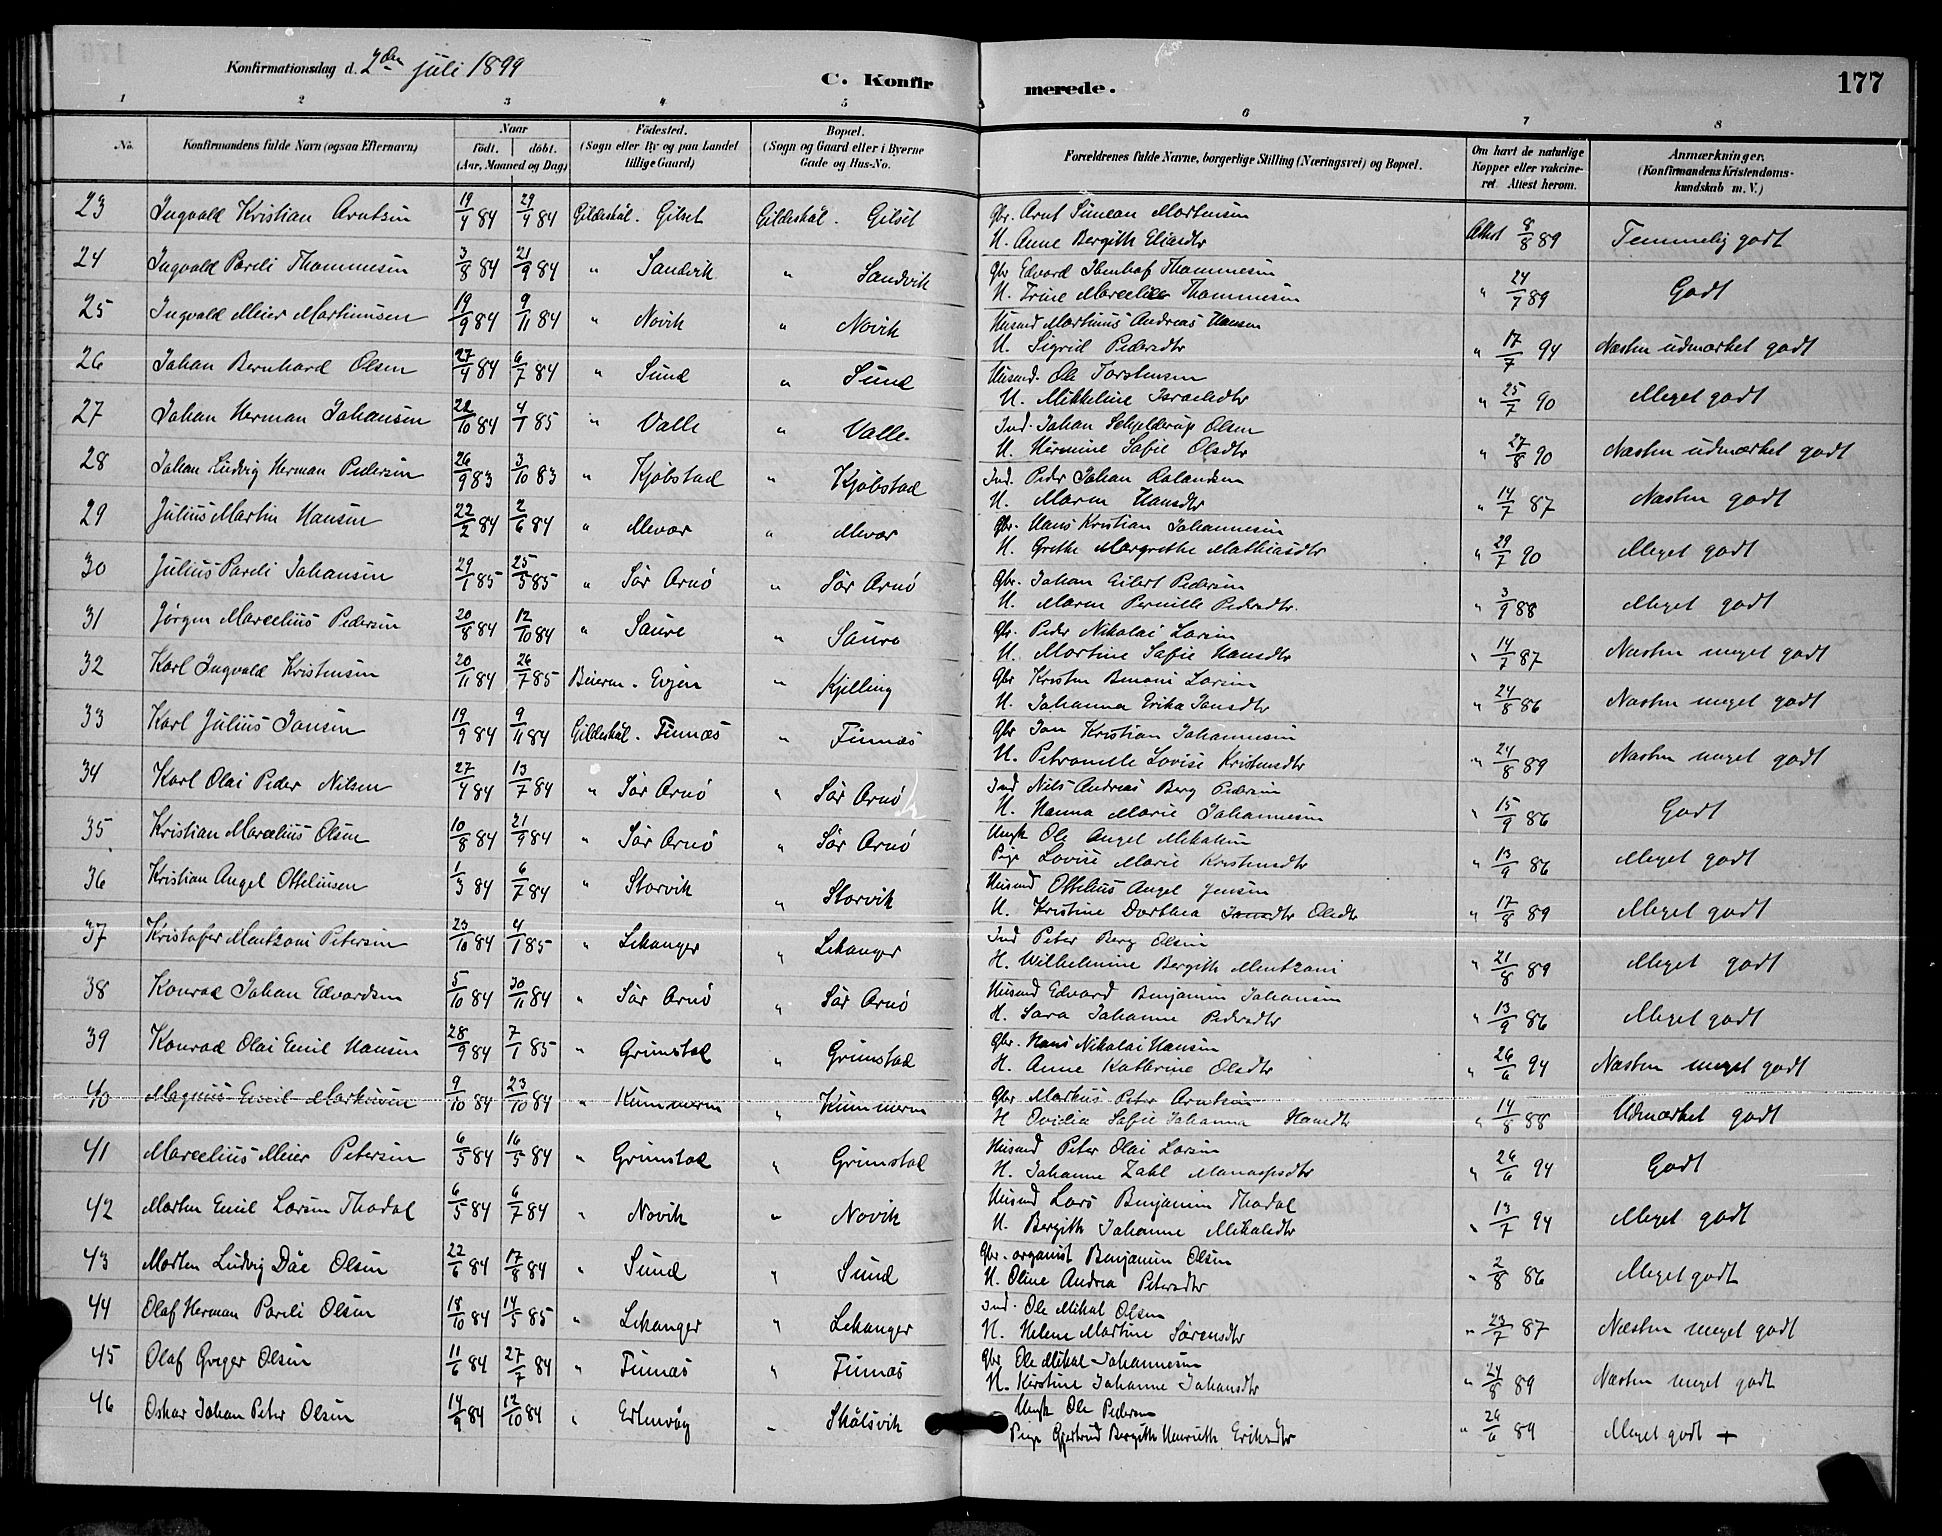 Konfirmationsdag d. 2den juli 1899
C. Konfirmerede.
177
1 2 3 4 5 6 7 8
No. Konfirmandens fulde Navn (ogsaa Efternavn) Naar födt. döbt. (Aar, Maaned og Dag) Födested. (Sogn eller By og paa Landet tillige Gaard) Bopæl. (Sogn og Gaard eller i Byerne Gade og Hus-No. Forældrenes fulde Navne, borgerlige Stilling (Næringsvei) og Bopæl. Om havt de naturlige Kopper eller vakcineret. Attest herom. Anmærkninger. (Konfirmandens Kristendomskundskab m. V.)
23 Ingvald Kristian Arntsen 19/4 84 29/4 84 Gildeskål. Gilset Gildeskål. Gilset Gbr. Arnt Simean Martensen
H. Anne Bergith Eliasdtr Attest 8/8 89 Temmelig godt
24 Ingvald Pareli Thommesen 3/8 84 21/9 84 " Sandvik " Sandvik Gbr Edvard Ibenhof Thommesen
H. Trine Marcelie Thommesen " 24/7 89 Godt
25 Ingvald Meier Martinusen 19/9 84 9/11 84 " Novik " Novik Husmd Martinus Andreas Hansen
H. Sigrid Pedersdtr " 17/7 94 Næsten udmærket godt
26 Johan Bernhard Olsen 27/4 84 6/7 84 " Sund " Sund Husmd. Ole Torstensen
H. Mikkeline Israelsdtr " 25/7 90 Meget godt
27 Johan Herman Johansen 22/10 84 4/1 85 " Valle " Valle. Ind. Johan Schjelderup Olsen
H. Hermine Sofie Olsdtr " 27/8 90 Næsten udmærket godt
28 Johan Ludvig Herman Pedersen 26/9 83 3/10 83 " Kjøbstad " Kjøbstad Ind. Peder Johan Rolandsen
H. Maren Hansdtr " 14/7 87 Næsten godt
29 Julius Martin Hansen 22/2 84 2/6 84 " Mevær " Mevær Gbr. Hans Kristian Johannesen
H. Grethe Margrethe Mathiasdtr " 29/7 90 Meget godt
30 Julius Pareli Johansen 29/1 85 25/5 85 " Sør Arnø " Sør Arnø Gbr. Johan Eilert Pedersen
H. Maren Pernille Pedersdtr. " 3/9 88 Meget godt
31 Jørgen Marcelius Pedersen 20/8 84 12/10 84 " Saure " Saura Gbr. Peder Nikolai Larsen
H. Martine Sofie Hansdtr " 14/7 87 Næsten meget godt
32 Karl Ingvald Kristensen 20/11 84 26/7 85 Beieren. Evjen " Kjelling Gbr Kristen Benoni Larsen
H. Johanna Erika Jonsdtr " 24/8 86 Næsten meget godt
33 Karl Julius Jonsen 19/9 84 9/11 84 Gildeskål. Finnæs " Finnæs Gbr Jon Kristian Johannesen
H. Petronelle Lovise Kristensdtr " 24/8 89 Næsten meget godt
34 Karl Olai Peder Nilsen 27/4 84 13/7 84 " Sør Arnø " Sør Arnø Ind Nils Andreas Berg Pedersen
H. Hanna Marie Johannesen " 15/9 86 Godt
35 Kristian Marcelius Olsen 10/8 84 21/9 84 " Sør Arnø " Sør Arnø Ungk Ole Angel Mikalsen
Pige Lovise Marie Kristensdtr " 13/9 86 Meget godt
36 Kristian Angel Otteliusen 1/3 84 6/7 84 " Storvik " Storvik Husmd Ottelius Angel Jensen
H. Kristine Dorthea Jonsdtr Olsdtr " 17/8 89 Meget godt
37 Kristofer Mentzoni Petersen 23/10 84 4/1 85 " Lekanger " Lekanger Ind Peter Berg Olsen
H. Wilhelmine Bergith Mentzoni " 21/8 89 Meget godt
38 Konrad Johan Edvardsen 5/10 84 30/11 84 " Sør Arnø " Sør Arnø Husmd Edvard Benjamin Johansen
H. Sara Johanne Pedersdtr " 13/9 86 Meget godt
39 Konrad Olai Emil Hansen 28/9 84 7/1 85 " Grimstad " Grimstad Gbr. Hans Nikolai Hansen
H. Anne Kathrine Olsdtr " 26/6 94 Næsten meget godt
40 Magnus Emil Markusen 9/10 84 23/10 84 " Kunnæren " Kunnæren Gbr Markus Peter Arntsen
H Ovidia Sofie Johanna Hansdtr " 14/8 88 Udmærket godt
41 Marcelius Meier Petersen 6/5 84 16/5 84 " Grimstad " Grimstad Husmd Peter Olai Larsen
H. Johanne Zahl Manassesdtr " 26/6 94 Godt
42 Morten Emil Larsen Thodal 6/5 84 6/7 84 " Novik " Novik Husmd Lars Benjamin Thodal
H. Bergith Johanne Mikalsdtr " 13/7 94 Meget godt
43 Morten Ludvig Dåe Olsen 22/6 84 17/8 84 " Sund " Sund Gbr. organist Benjamin Olsen
H. Oline Andrea Petersdtr " 2/8 86 Meget godt
44 Olaf Herman Pareli Olsen 18/10 84 14/5 85 " Lekanger " Lekanger Ind. Ole Mikal Olsen
H. Helene Martine Sørensdtr " 23/7 87 Næsten meget godt
45 Olaf Greger Olsen 11/6 84 27/7 84 " Finnæs " Finnæs Gbr Ole Mikal Johannesen
H. Kirstine Johanne Johansdtr " 24/8 89 Næsten meget godt
46 Oskar Johan Peter Olsen 14/9 84 12/10 84 " Ertenvåg " Skålsvik Ungk Ole Pedersen
Pige Gjertrud Bergithe Henriethe Eriksdtr " 26/6 89 Meget godt +